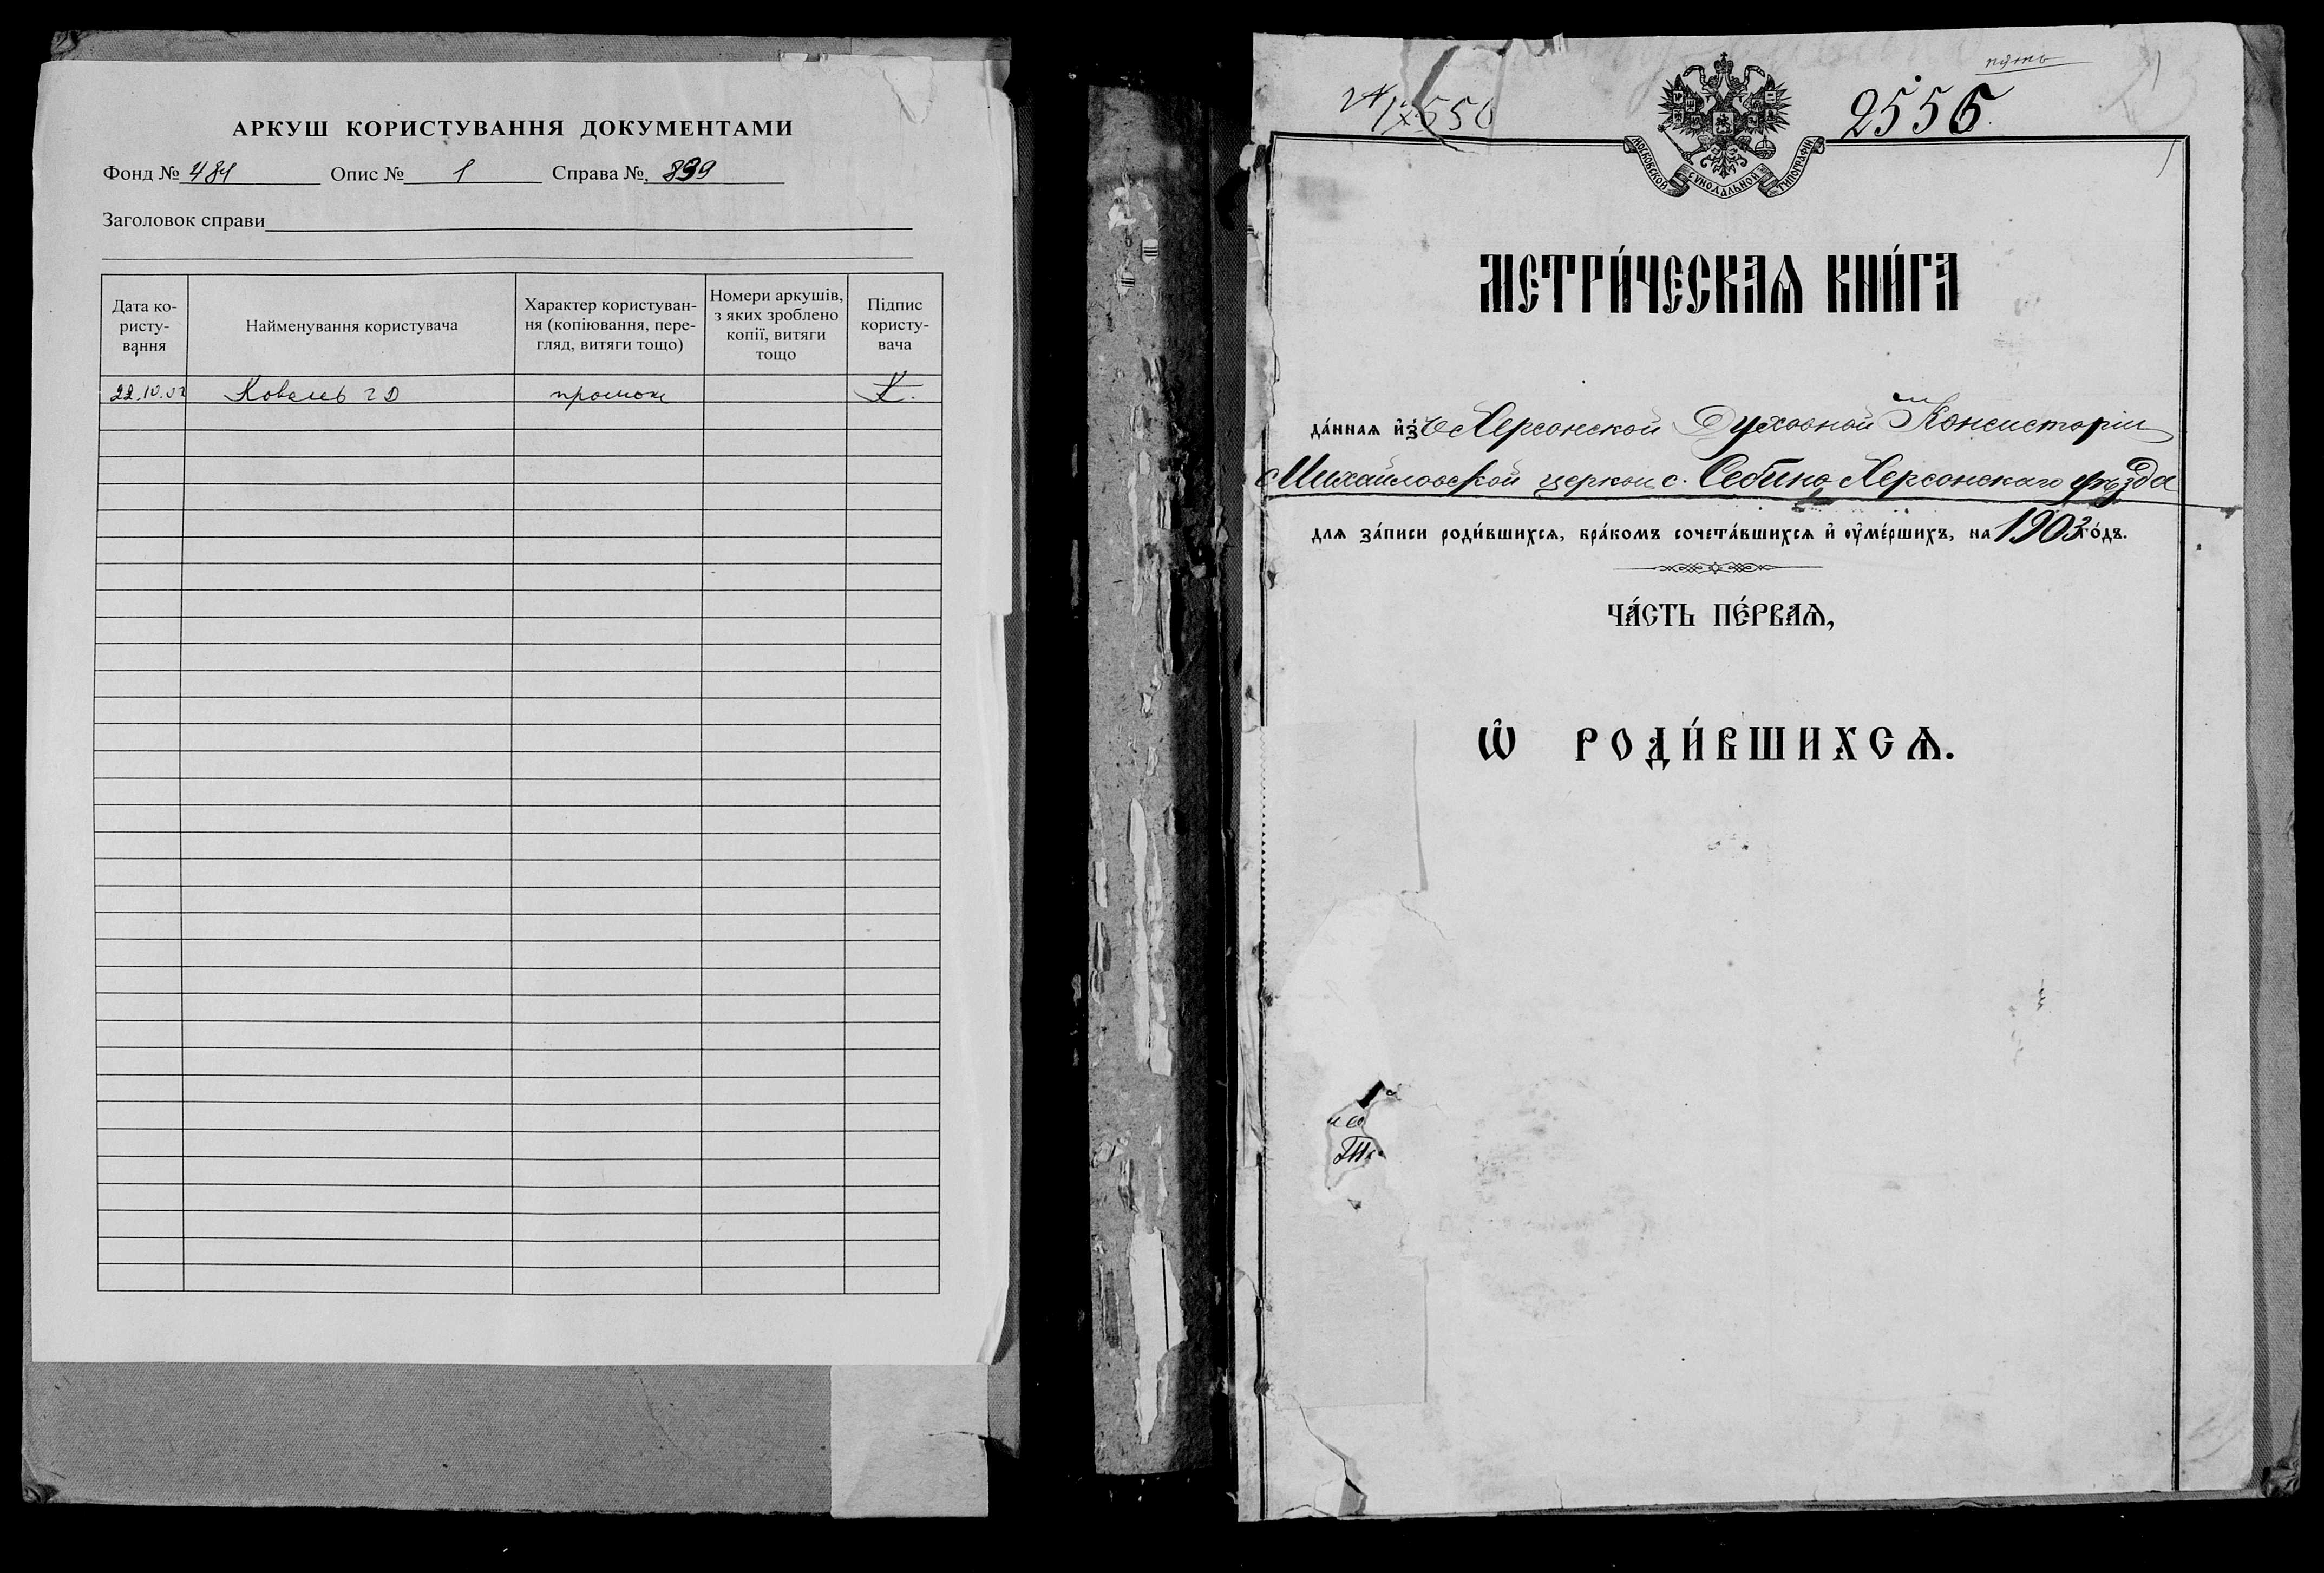 АРКУШ КОРИСТУВАННЯ ДОКУМЕНТАМИ
Фонд № 484 Опис № 1 Справа № 899
Заголовок справи
Дата ко-
ристу-
вання
Найменування користувача
Характер користуван-
ня (копіювання, пере-
гляд, витяги тощо)
Номери аркушів,
з яких зроблено
копії, витяги
тощо
Підпис
користу-
вача
22.10.02
2556
МОСКОВСКОЙ СѴНОДАЛЬНОЙ ТИПОГРАФІИ
МЕТРИ́ЧЕСКАѦ КНИ́ГА
да́ннаѧ и҆зъ Херсонской Духовной Консисторіи
Михайловской церкви с. Себино Херсонскаго уѣзда
длѧ за́писи роди́вшихсѧ, бра́комъ сочета́вшихсѧ и҆ ѹ҆ме́ршихъ, на 1903 го́дъ.
ЧА́СТЬ ПЕ́РВАѦ,
Ѡ҆ РОДИ́ВШИХСѦ.